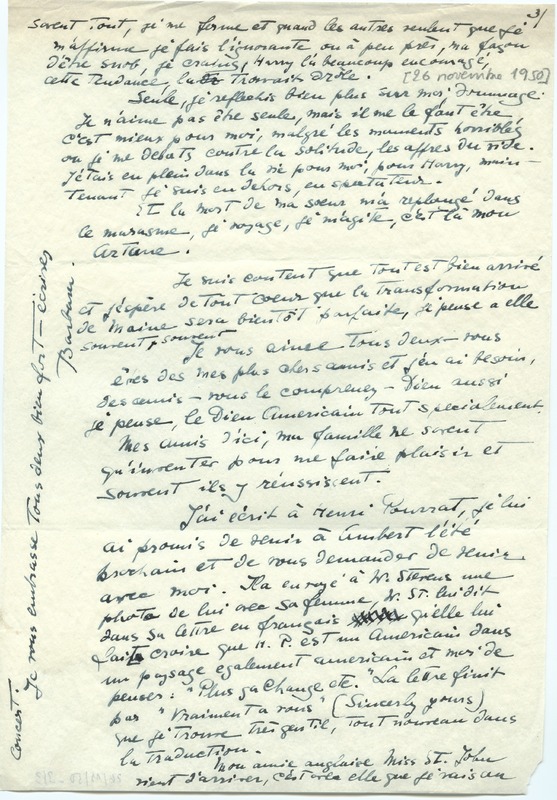 3/
savent tout, je me ferme et quand les autres veulent que je
m'affirme je fais l'ignorante ou à peu près, ma façon
d'être snob, je crains, Harry l'a beaucoup encouragé,
cette tendance, la trouvait drôle.
[26 novembre 1950]
Seule, je reflechis bien plus sur moi dommage.
Je n'aime pas être seule, mais il me le faut être
c'est mieux pour moi, malgré les moments horribles
ou je me debats contre la solitude, les affres du vide.
J'étais en plein dans la vie pour moi, pour Harry, main-
tenant je suis en dehors, en spectateur.
Et la mort de ma soeur m'a replongé dans
ce marasme, je voyage, je m'agite, c'est là mon
.
Je suis content que tout est bien arrivé
et j'espère de tout coeur que la transformation
de Maine sera bientôt parfaite, je pense a elle
souvent, souvent
Je vous aime tous deux - vous
êtes des mes plus chers amis et j'en ai besoin,
des amis - vous le comprenez - Dieu aussi
je pense, le Dieu Americain tout specialement.
Mes amis d'ici, ma famille ne savent
qu'inventer pour me faire plaisir et
souvent ils y réussissent.
J'ai écrit à Henri Pourrat, je lui
ai promis de venir à Ambert l'été
prochain et de vous demander de venir
avec moi. Il a envoyé à W. Stevens une
photo de lui avec sa femme, W. St. lui dit
dans sa lettre en français qu'elle lui
fait croire que H. P. est un Americain dans
un paysage egalement americain et moi de
penser : "Plus ça change etc." La lettre finit
par "Vraiment a vous" (Sincerly yours)
que je trouve très gentil, tout nouveau dans
la traduction.
Mon amie anglaise Miss St. John
vient d'arriver, c'est avec elle que je vais au
concert.
Je vous embrasse tous deux bien fort - écrives
Barbara.